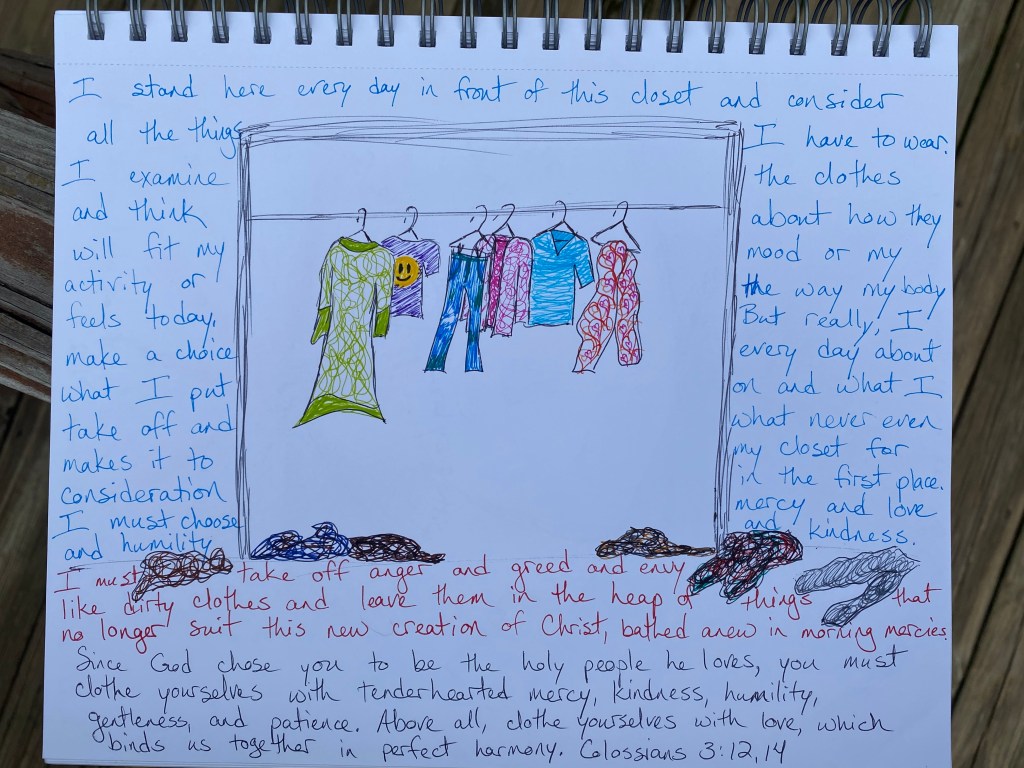 I stand here every day in front of this closet and consider
all the things I have to wear.
I examine the clothes
and think about how they
will fit my mood or my
activity or the way my body
feels today. But really, I
make a choice every day about
what I put on and what I
take off and what never even
makes it to my closet for
consideration in the first place.
I must choose mercy and love
and humility and kindness.
I must take off anger and greed and envy
like dirty clothes and leave them in the heap of things that
no longer suit this new creation of Christ, bathed anew in morning mercies.
Since God chose you to be the holy people he loves, you must
clothe yourselves with tenderhearted mercy, kindness, humility,
gentleness, and patience. Above all, clothe yourselves with love, which
binds us together in perfect harmony. Colossians 3:12,14